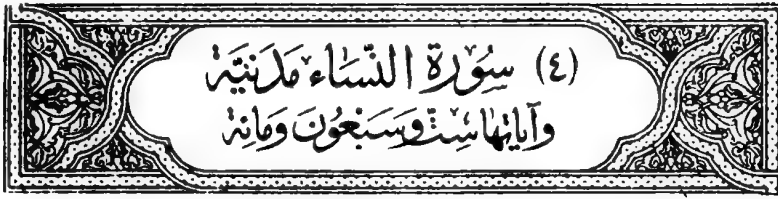 (٤) سُورَة النِّسَاء مَدَنيَّة
وآياتها سِتّ وَسَبْعُونَ وَمائة